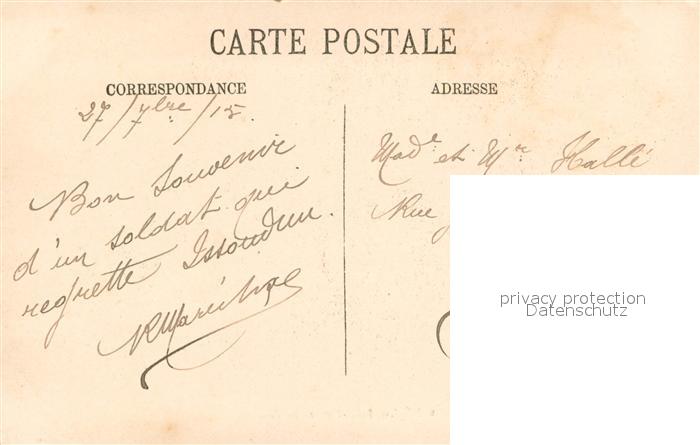 CARTE POSTALE
CORRESPONDANCE
ADRESSE
27/7bre/15.
Bon Souvenir
d'un soldat qui
regrette Issoudun.
Made et Mr Hallé
Rue
privacy protection
Datenschutz